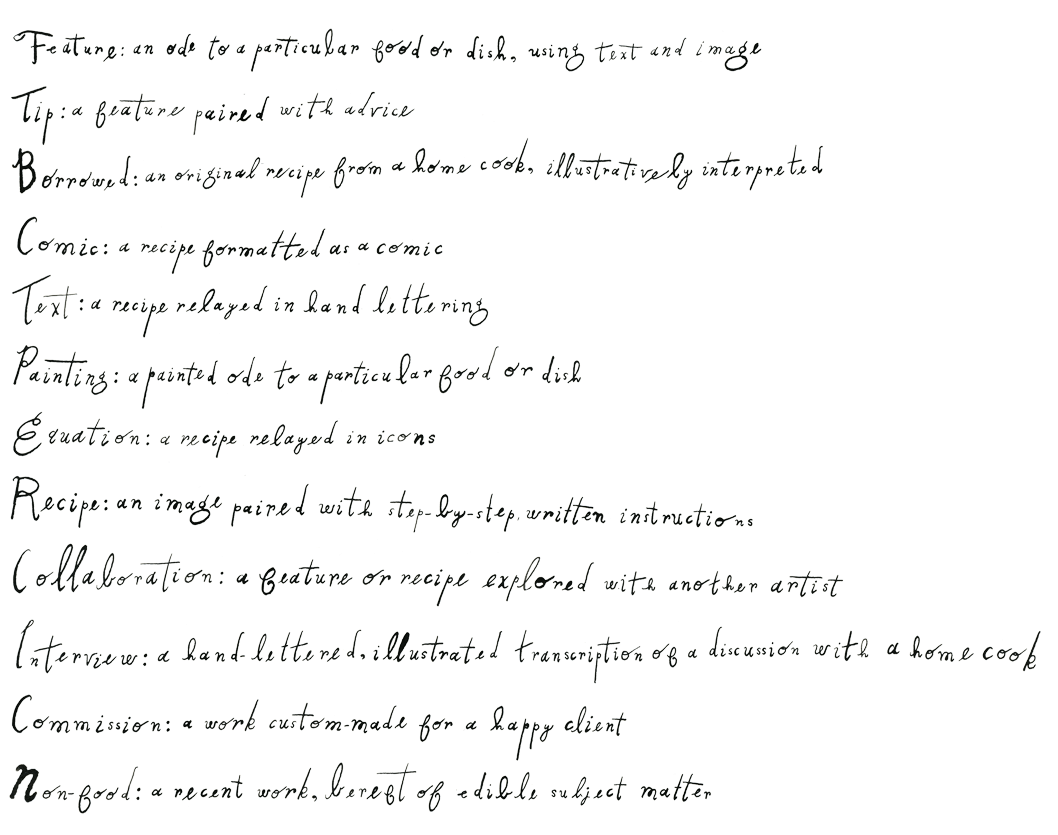 Feature: an ode to a particular food or dish, using text and image
Tip: a feature paired with advice
Borrowed: an original recipe from a home cook, illustratively interpreted
Comic: a recipe formatted as a comic
Text: a recipe relayed in hand lettering
Painting: a painted ode to a particular food or dish
Equation: a recipe relayed in icons
Recipe: an image paired with step-by-step, written instructions
Collaboration: a feature or recipe explored with another artist
Interview: a hand-lettered, illustrated transcription of a discussion with a home cook
Commission: a work custom-made for a happy client
Non-food: a recent work, bereft of edible subject matter